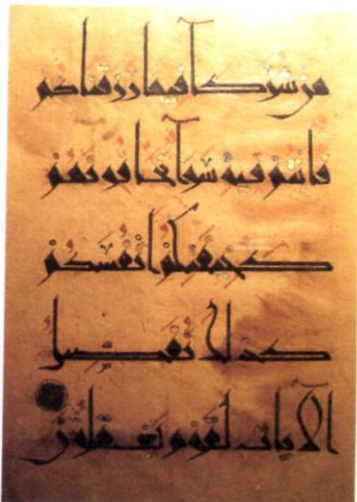 من شركا فيما رزقناكم
فانتم فيه سوا تخافونهم
كخيفتكم انفسكم
كذلك نفصل
الآيات لقوم يعقلون